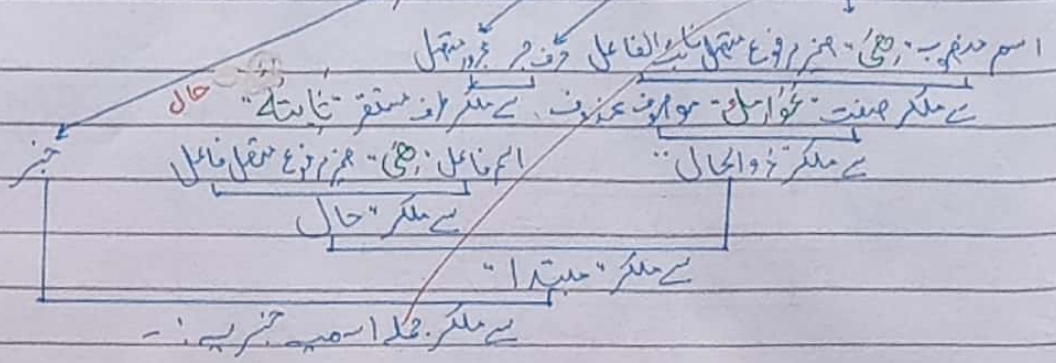 اسم منصوب "ھی" ضمیر مرفوع متصل نائب الفاعل حرف جر مجرور متصل
حال
سے ملکر صفت "عوامل" موصوف محذوف۔ سے ملکر ظرف مستقر "ثابتۃ"
سے ملکر "ذوالحال" اسم فاعل "ھی" ضمیر مرفوع متصل فاعل خبر
سے ملکر "حال"
سے ملکر "مبتدا"
سے ملکر جملہ اسمیہ خبریہ :۔